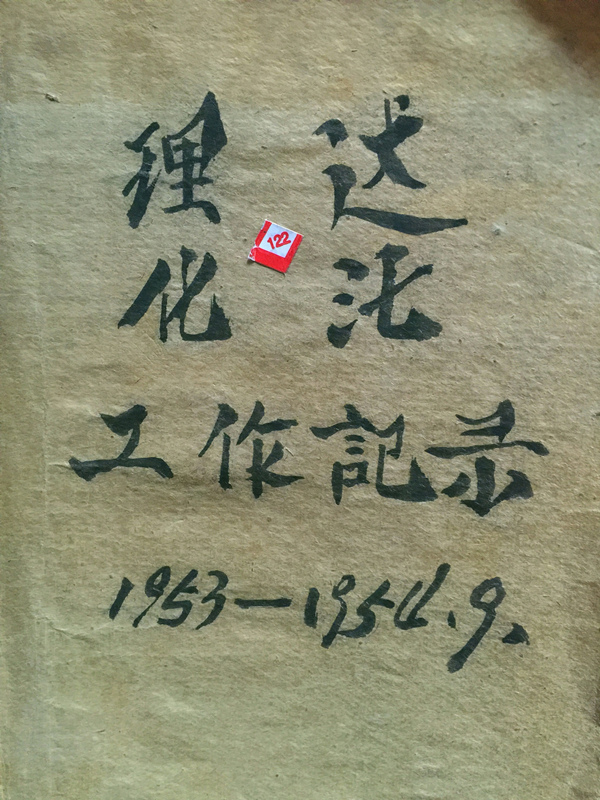 理 达
122
化
工作記录
1953—1954.9.